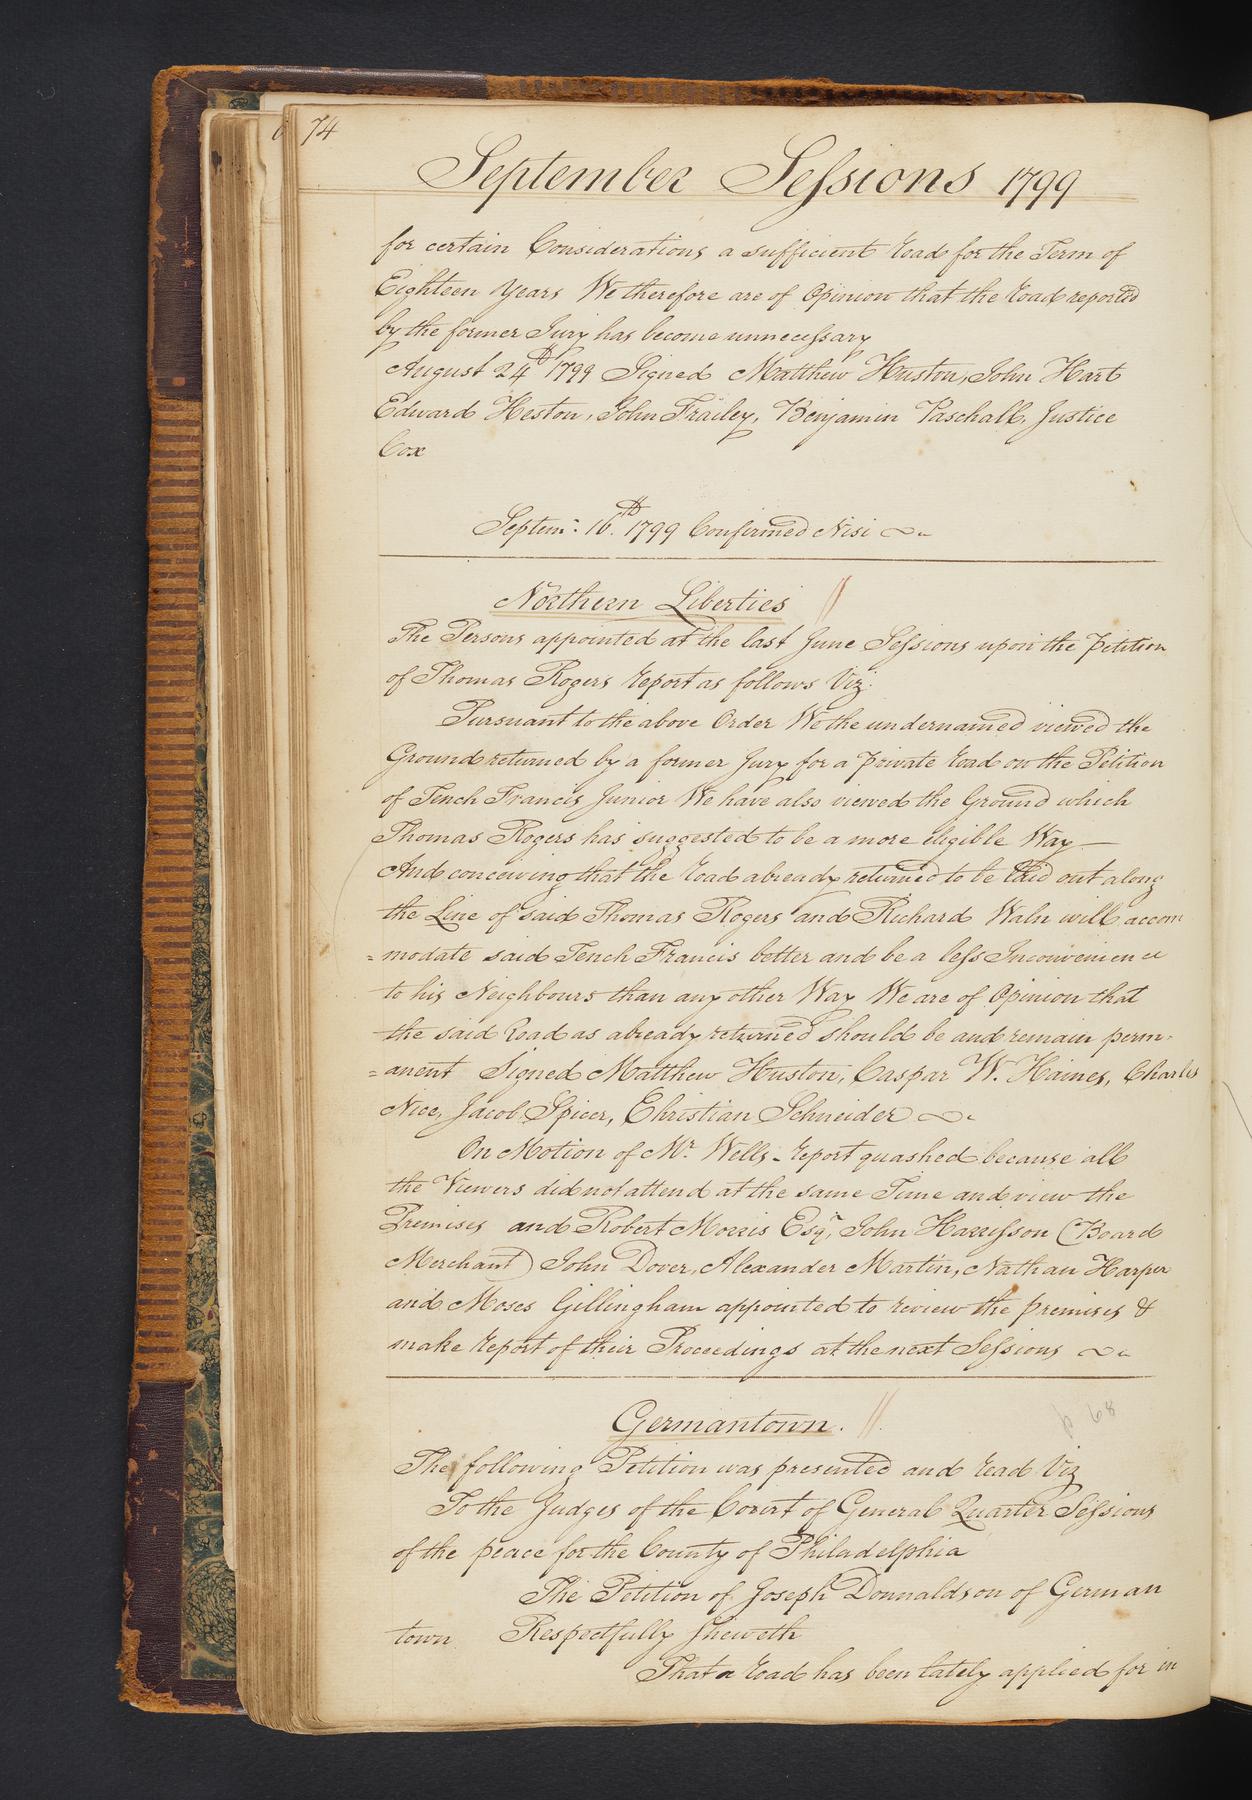 74
September Sessions 1799
for certain Considerations a sufficient road for the Term of
Eighteen Years We therefore are of Opinion that the road reported
by the former Jury has become unnecessary
August 24th 1799 Signed Matthew Huston, John Hart
Edward Heston, John Frailey, Benjamin Paschall, Justice
Cox
Septem: 16th. 1799 Confirmed Nisi
Northern Liberties
The Persons appointed at the last June Sessions upon the Petition
of Thomas Rogers report as follows Viz:
Pursuant to the above Order We the undernamed viewed the
Ground returned by a former Jury for a private road on the Petition
of Tench Francis Junior We have also viewed the Ground which
Thomas Rogers has suggested to be a more eligible Way —
And conceiving that the road already returned to be laid out along
the Line of said Thomas Rogers and Richard Waln will accom
=modate said Tench Francis better and be a less Inconvenience
to his Neighbours than any other Way We are of Opinion that
the said road as already returned should be and remain perm-
=anent Signed Matthew Huston, Caspar W. Haines, Charles
Nice, Jacob Spicer, Christian Schneider
On Motion of Mr. Wells - report quashed because all
the Viewers did not attend at the same Time and view the
Premises and Robert Morris Esqr, John Harrisson (Board
Merchant) John Dover, Alexander Martin, Nathan Harper
and Moses Gillingham appointed to review the premises &
make report of their Proceedings at the next Sessions
Germantown.
p 68
The following Petition was presented and read Viz
To the Judges of the Court of General Quarter Sessions
of the peace for the County of Philadelphia
The Petition of Joseph Donnaldson of German
town Respectfully Sheweth
That a road has been lately applied for in